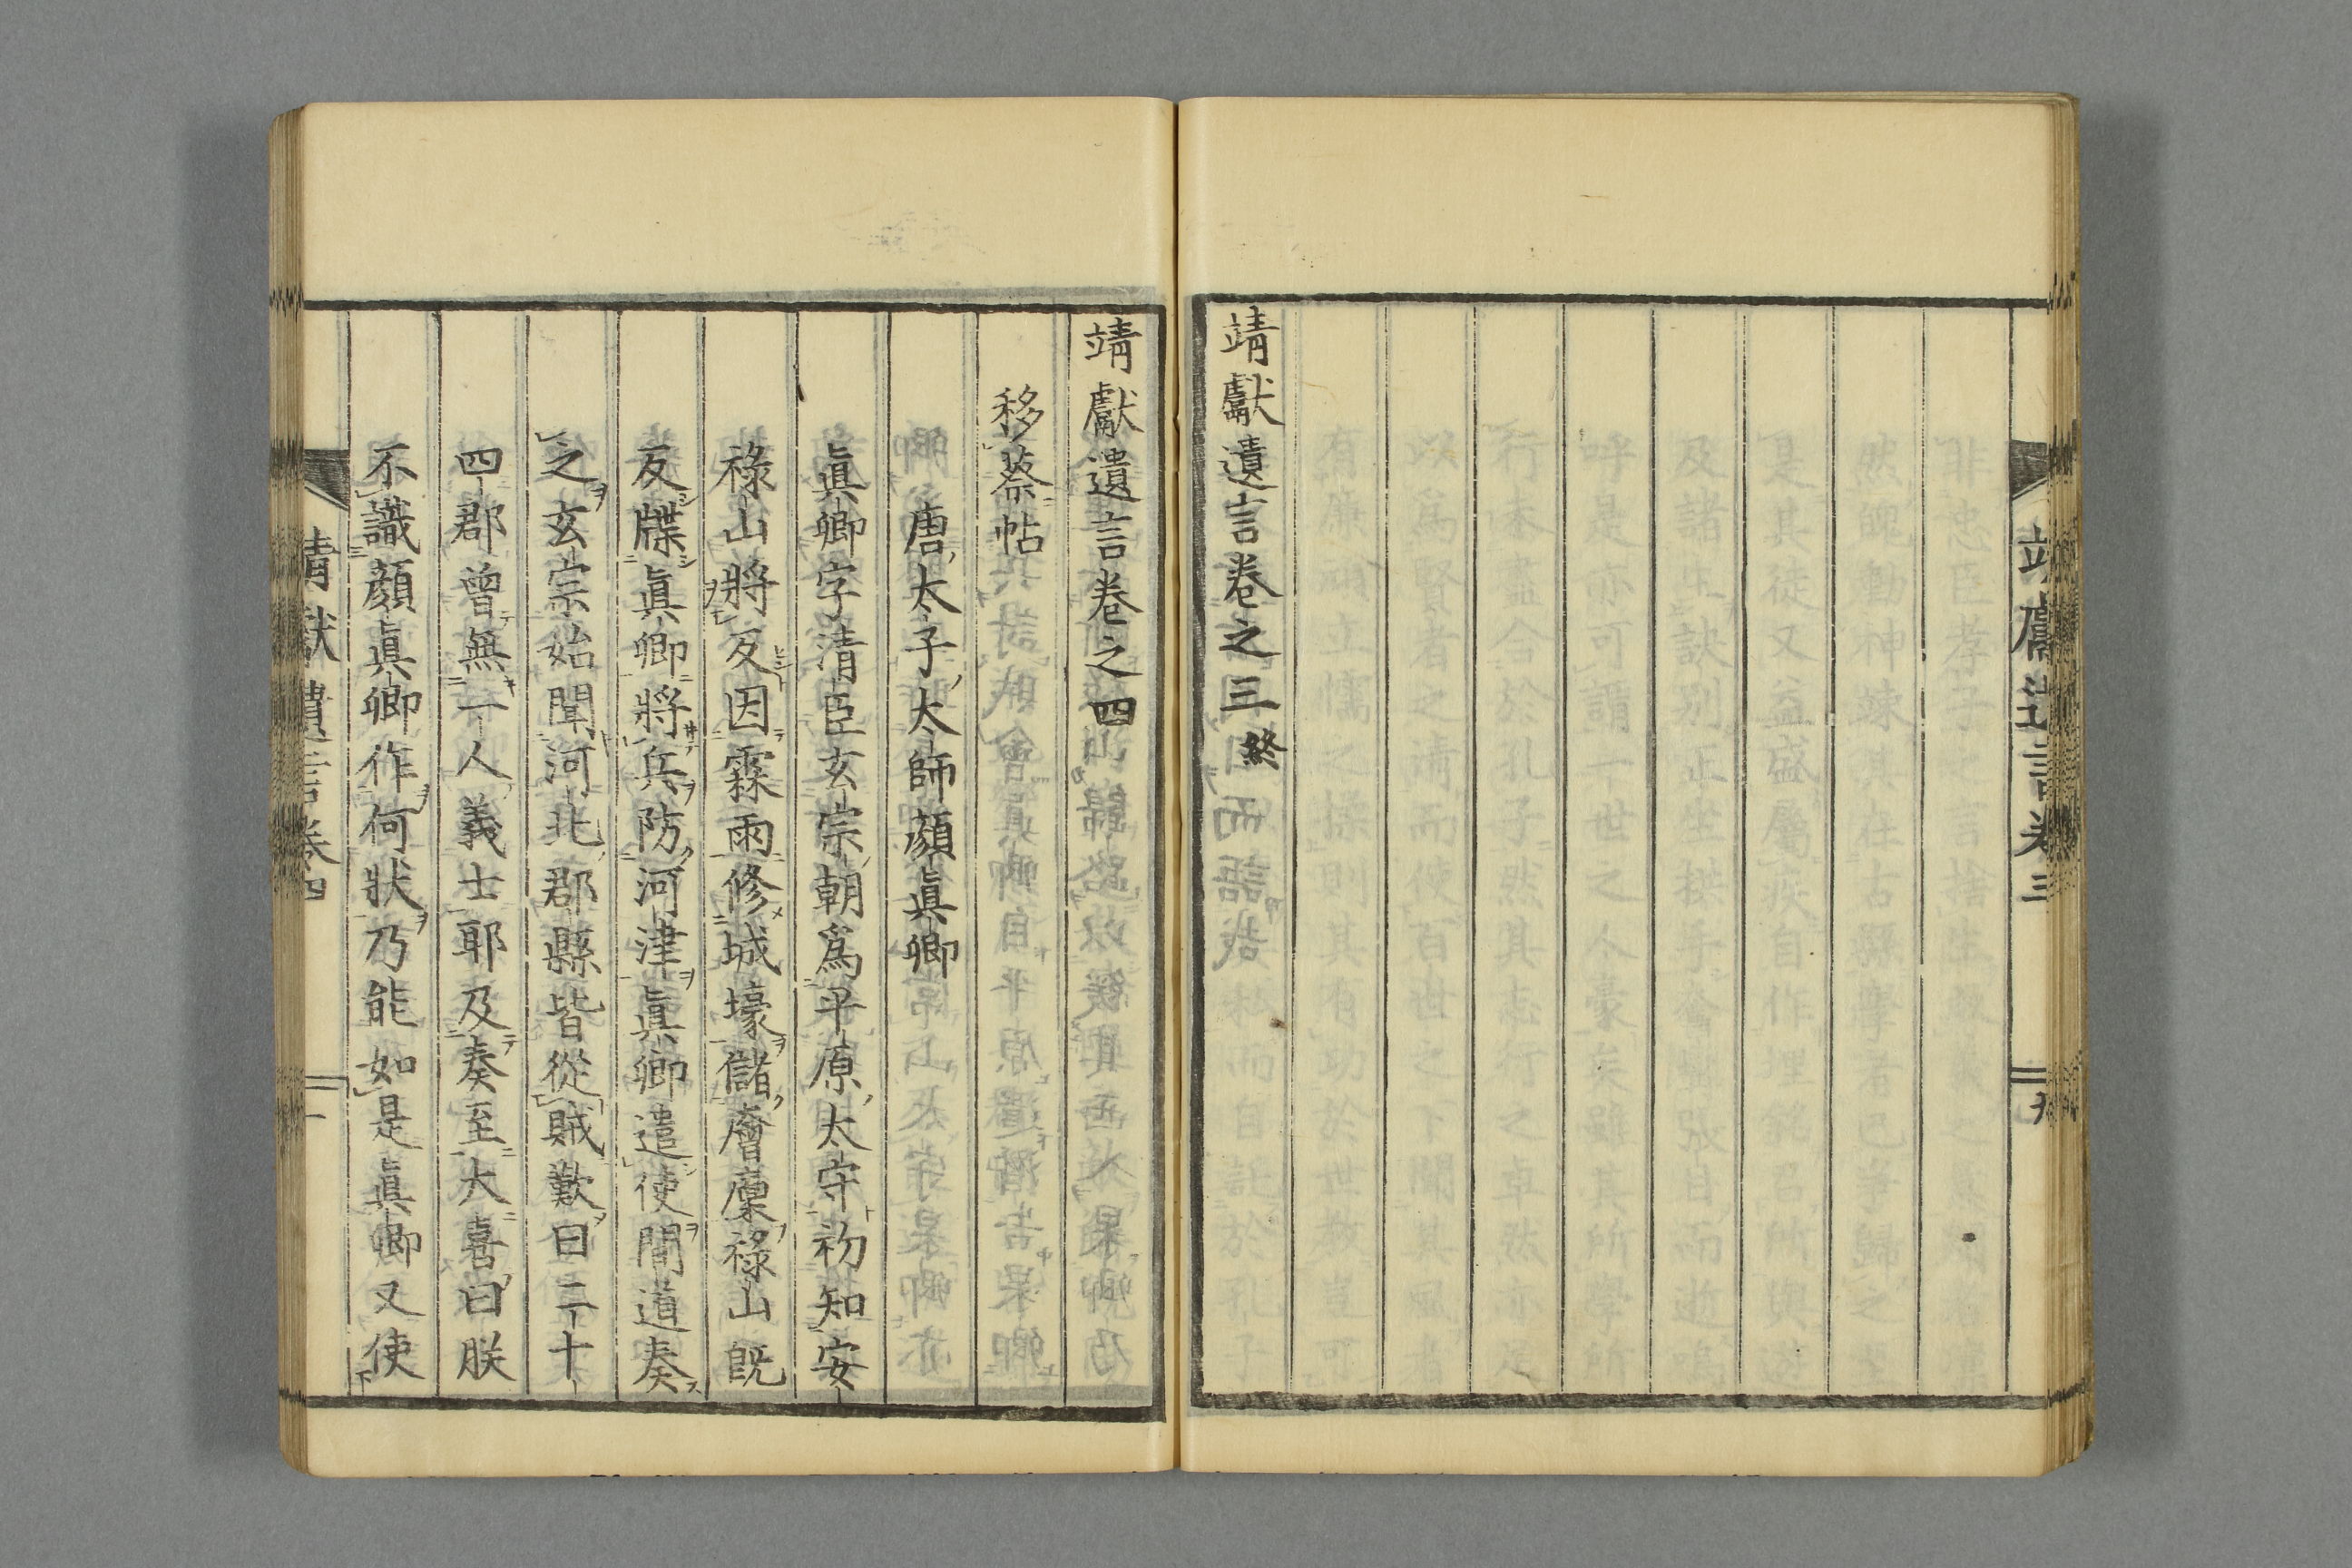 靖獻遺言卷之三終
靖獻遺言卷三
靖獻遺言卷之四
移蔡帖
唐太子太師顏眞卿
眞卿字清臣玄宗朝爲平原太守初知安
祿山將反因霖雨修城壕儲廥廩祿山旣
反牒眞卿將兵防河津眞卿遣使間道奏
之玄宗始聞河北郡縣皆從賊歎曰二十
四郡曾無一人義士耶及奏至大喜曰朕
不識顏眞卿作何狀乃能如是眞卿又使
靖獻遺言卷四
一